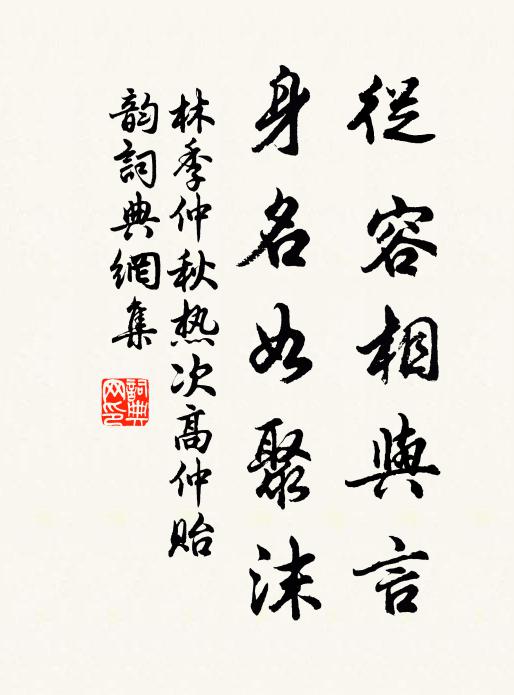 從容相與言
身名如聚沫
林季仲秋热次高仲貽
韵詞典網集
詞典網印